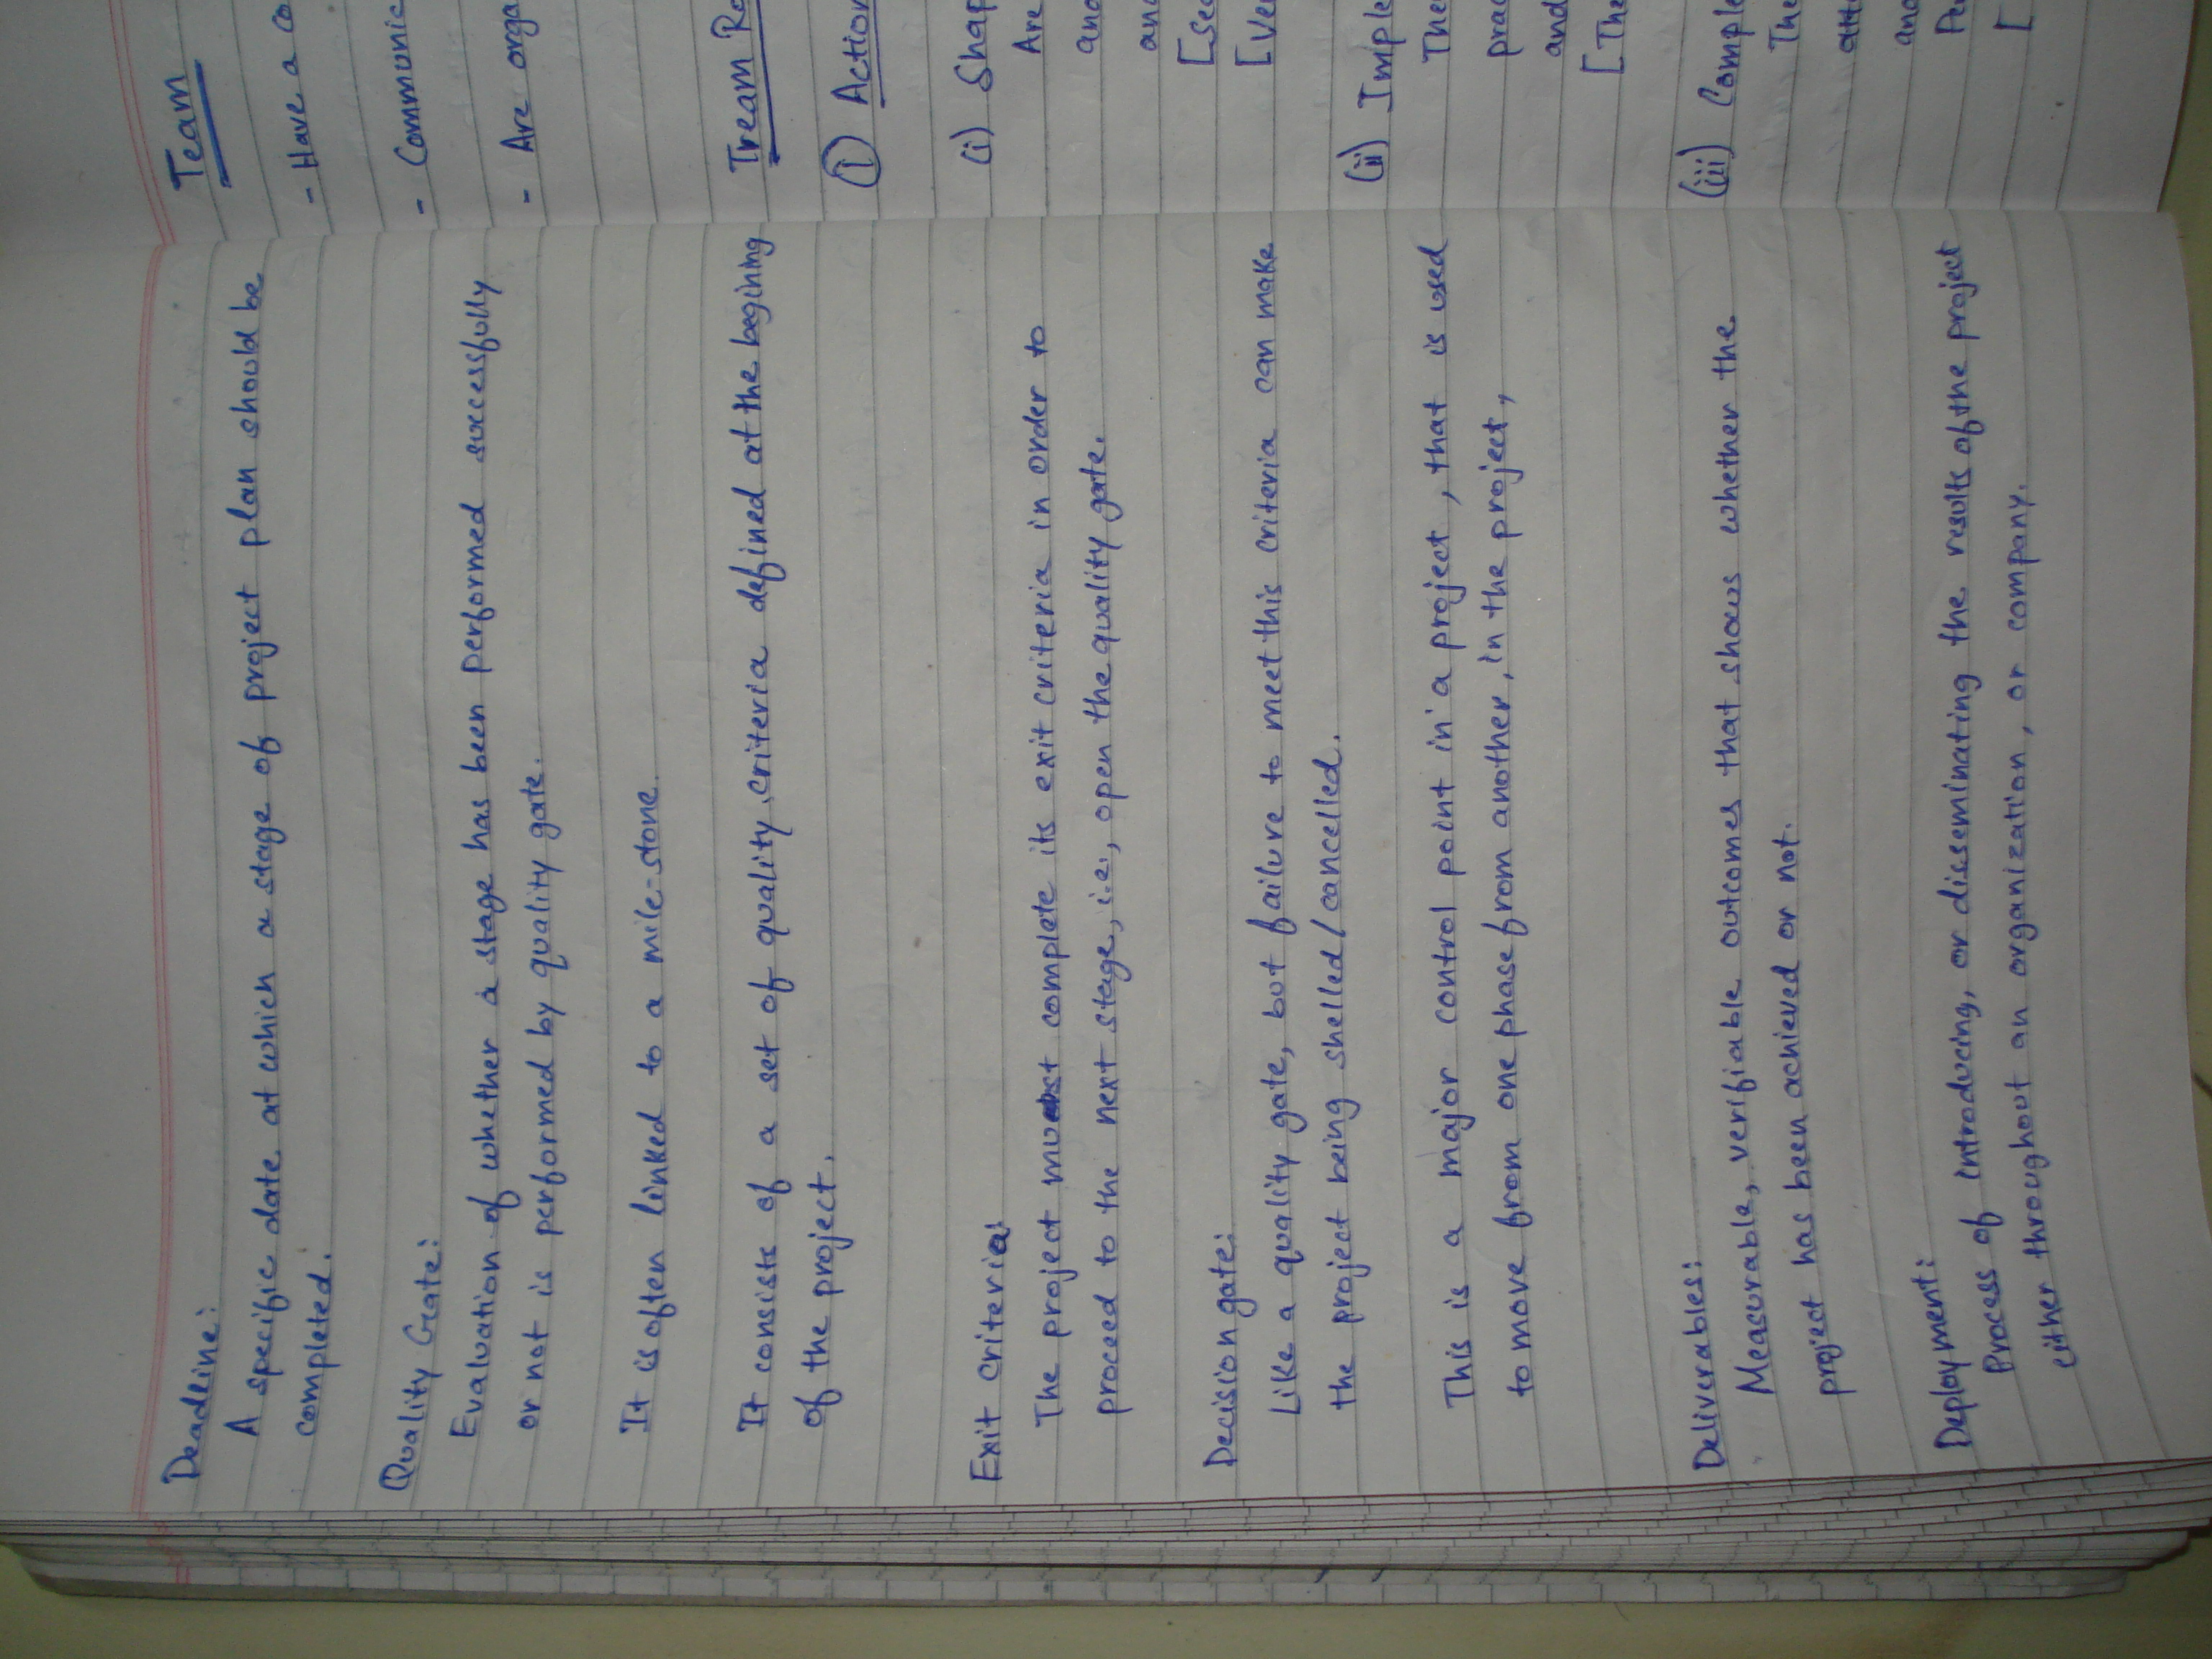 Deadline:
A specific date at which a stage of project plan should be
completed.
Quality Gate:
Evaluation of whether a stage has been performed successfully
or not is performed by quality gate.
It is often linked to a mile-stone.
It consists of a set of quality criteria defined at the begining
of the project.
Exit criteria:
The project must complete its exit criteria in order to
proceed to the next stage, i.e., open the quality gate.
Decision gate:
Like a quality gate, but failure to meet this criteria can make
the project being shelled/cancelled.
This is a major control point in a project, that is used
to move from one phase from another, in the project,
Deliverables:
Measurable, verifiable outcomes that shows whether the
project has been achieved or not.
Deployment:
Process of introducing, or disseminating the results of the project
either throughout an organization, or company.
Team
- Have a co
- Communic
- Are orga
Tream Ro
(1) Action
(i) Shap
Are
and
and
[See
[Ver
(ii) Imple
The
prac
and
[The
(iii) Comple
The
and
Pe
[